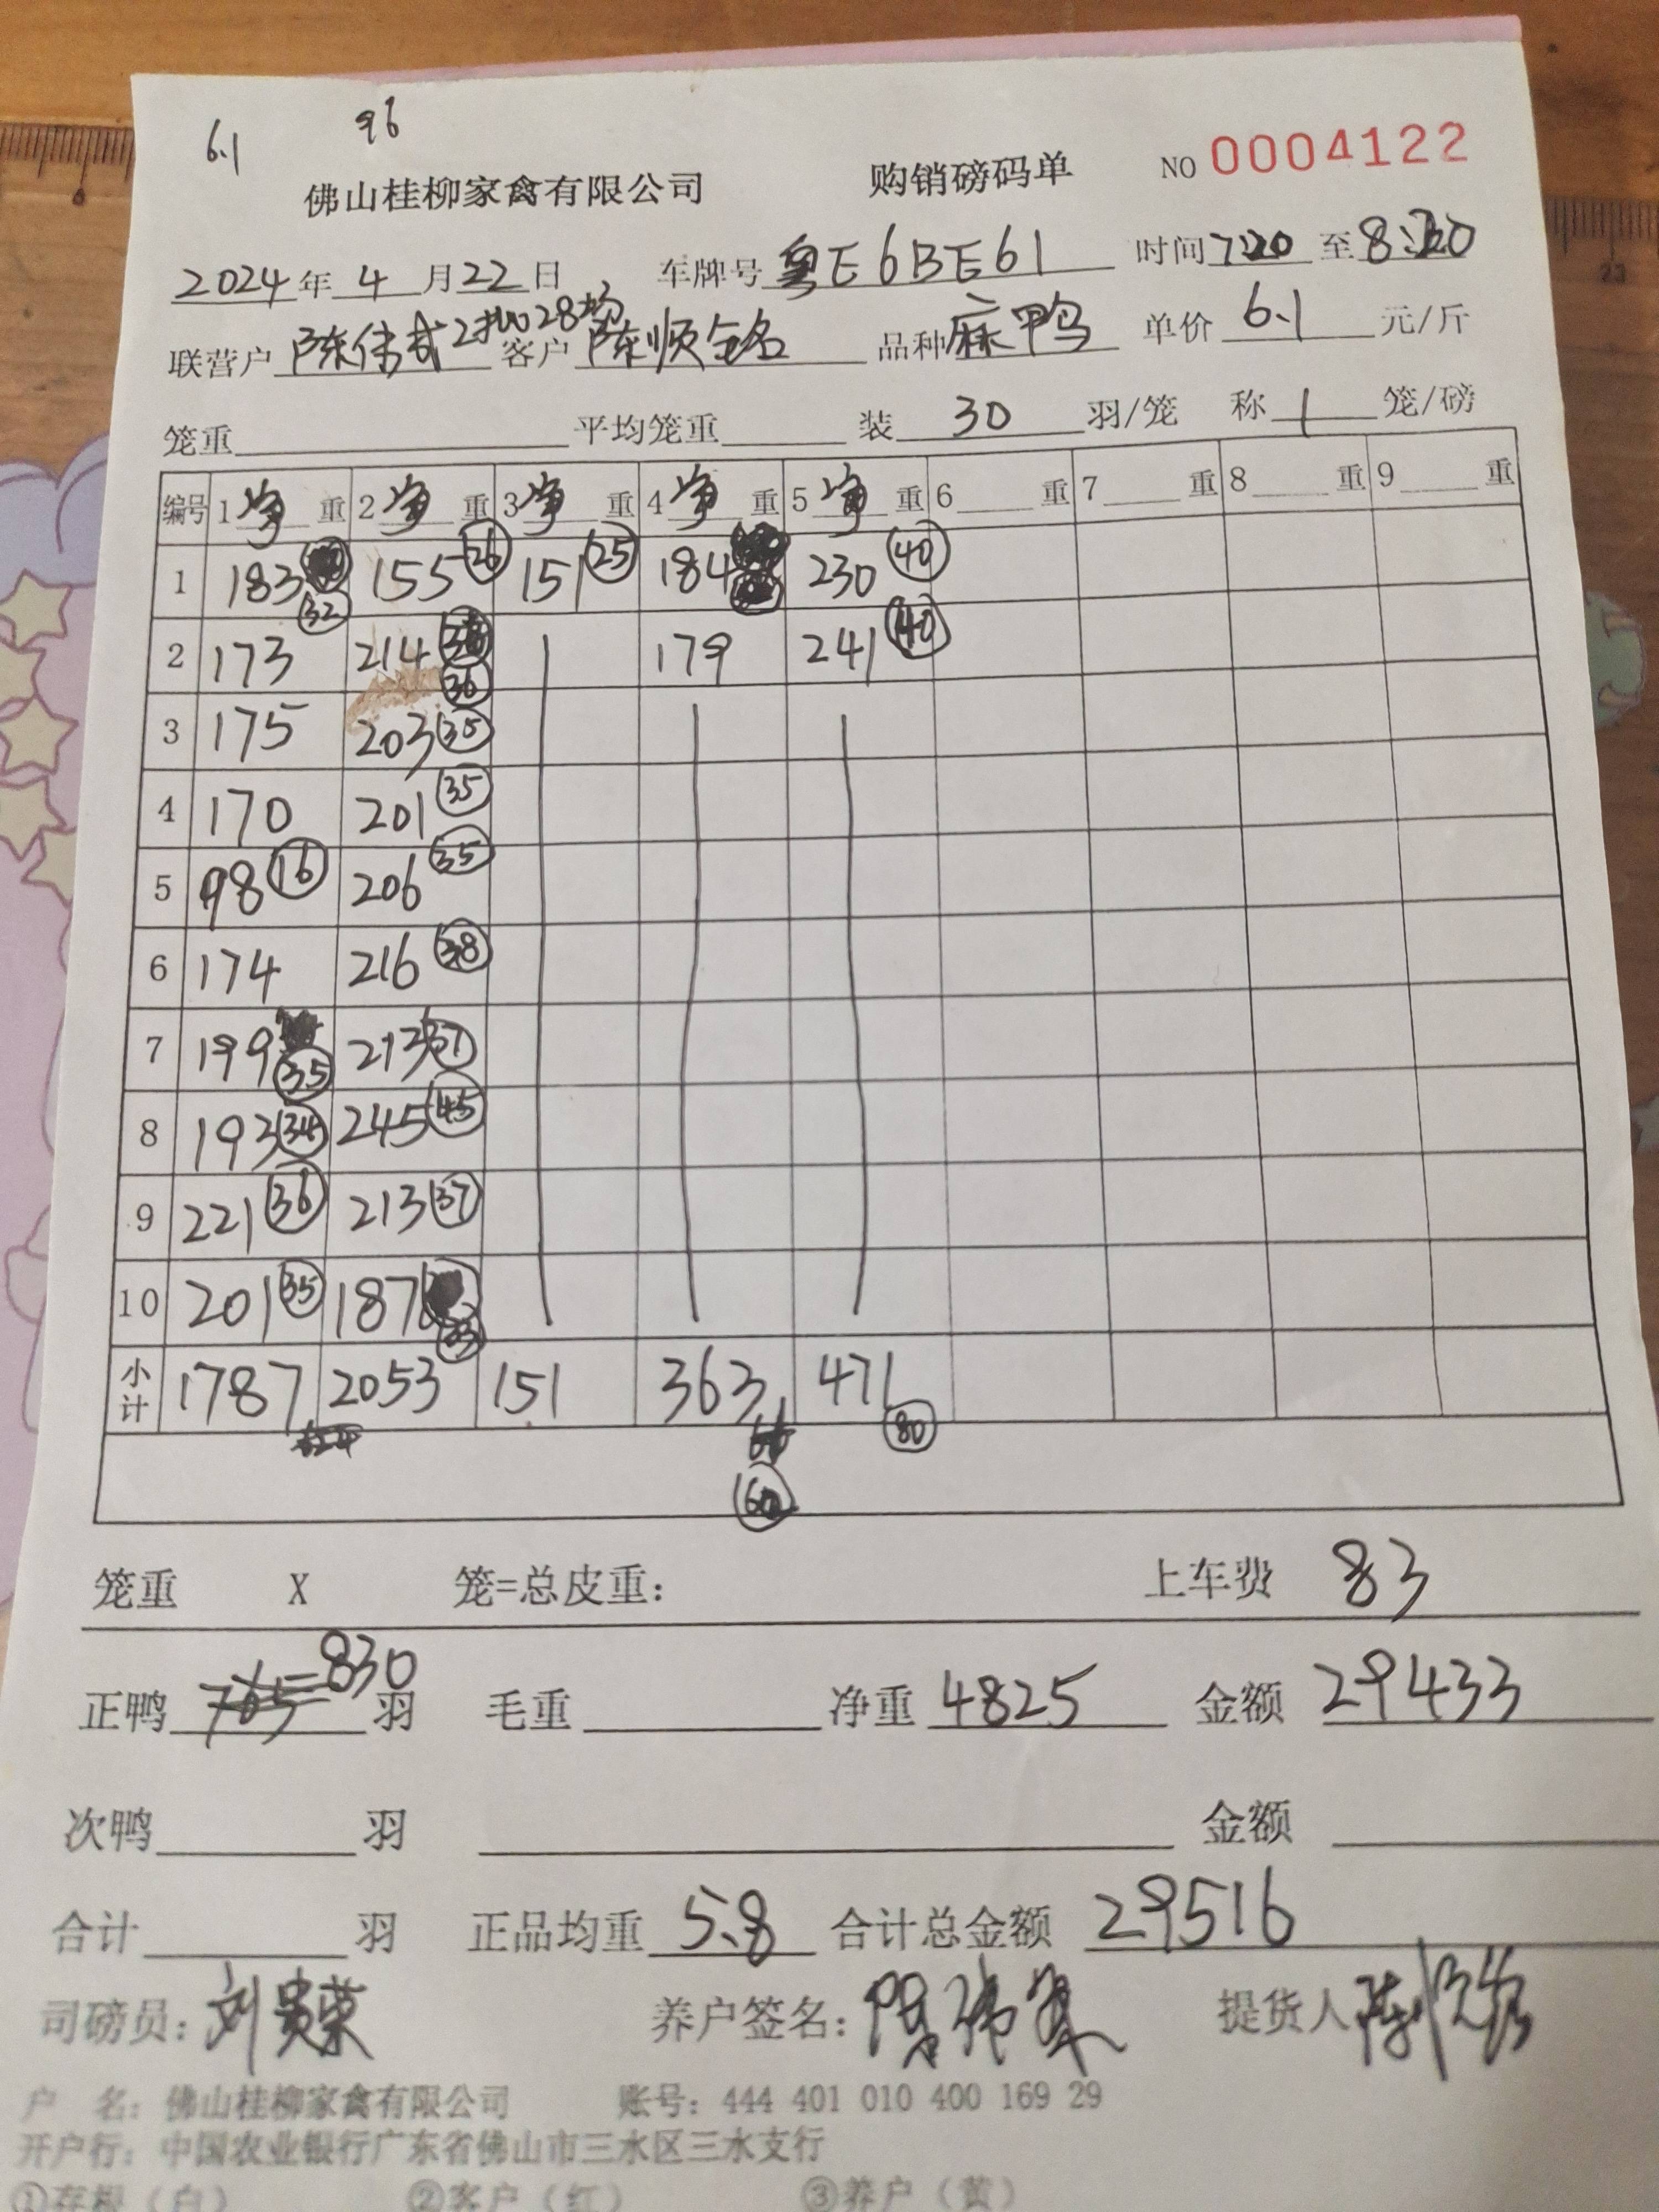 6.1 96
佛山桂柳家禽有限公司 购销磅码单 NO 0004122
2024年 4 月 22 日 车牌号 粤E6BE61 时间 7:20 至 8:20
联营户 陈伟 2批28场 客户 陈顺全名 品种 麻鸭 单价 6.1 元/斤
笼重 平均笼重 装 30 羽/笼 称 1 笼/磅
编号 1 净 重 2 净 重 3 净 重 4 净 重 5 净 重 6 重 7 重 8 重 9 重
1 183 32 155 26 151 25 184 230 40
2 173 214 36 179 241 40
3 175 203 35
4 170 201 35
5 98 16 206 35
6 174 216 38
7 199 35 213 37
8 193 34 245 45
9 221 36 213 37
10 201 35 187
小计 1787 2053 151 363 471
80
60
笼重 X 笼=总皮重: 上车费 83
正鸭 765 830 羽 毛重 净重 4825 金额 29433
次鸭 羽 金额
合计 羽 正品均重 5.8 合计总金额 29516
司磅员: 刘贵荣 养户签名: 提货人
户 名: 佛山桂柳家禽有限公司 账号: 444 401 010 400 169 29
开户行: 中国农业银行广东省佛山市三水区三水支行
①存根（白） ②客户（红） ③养户（黄）